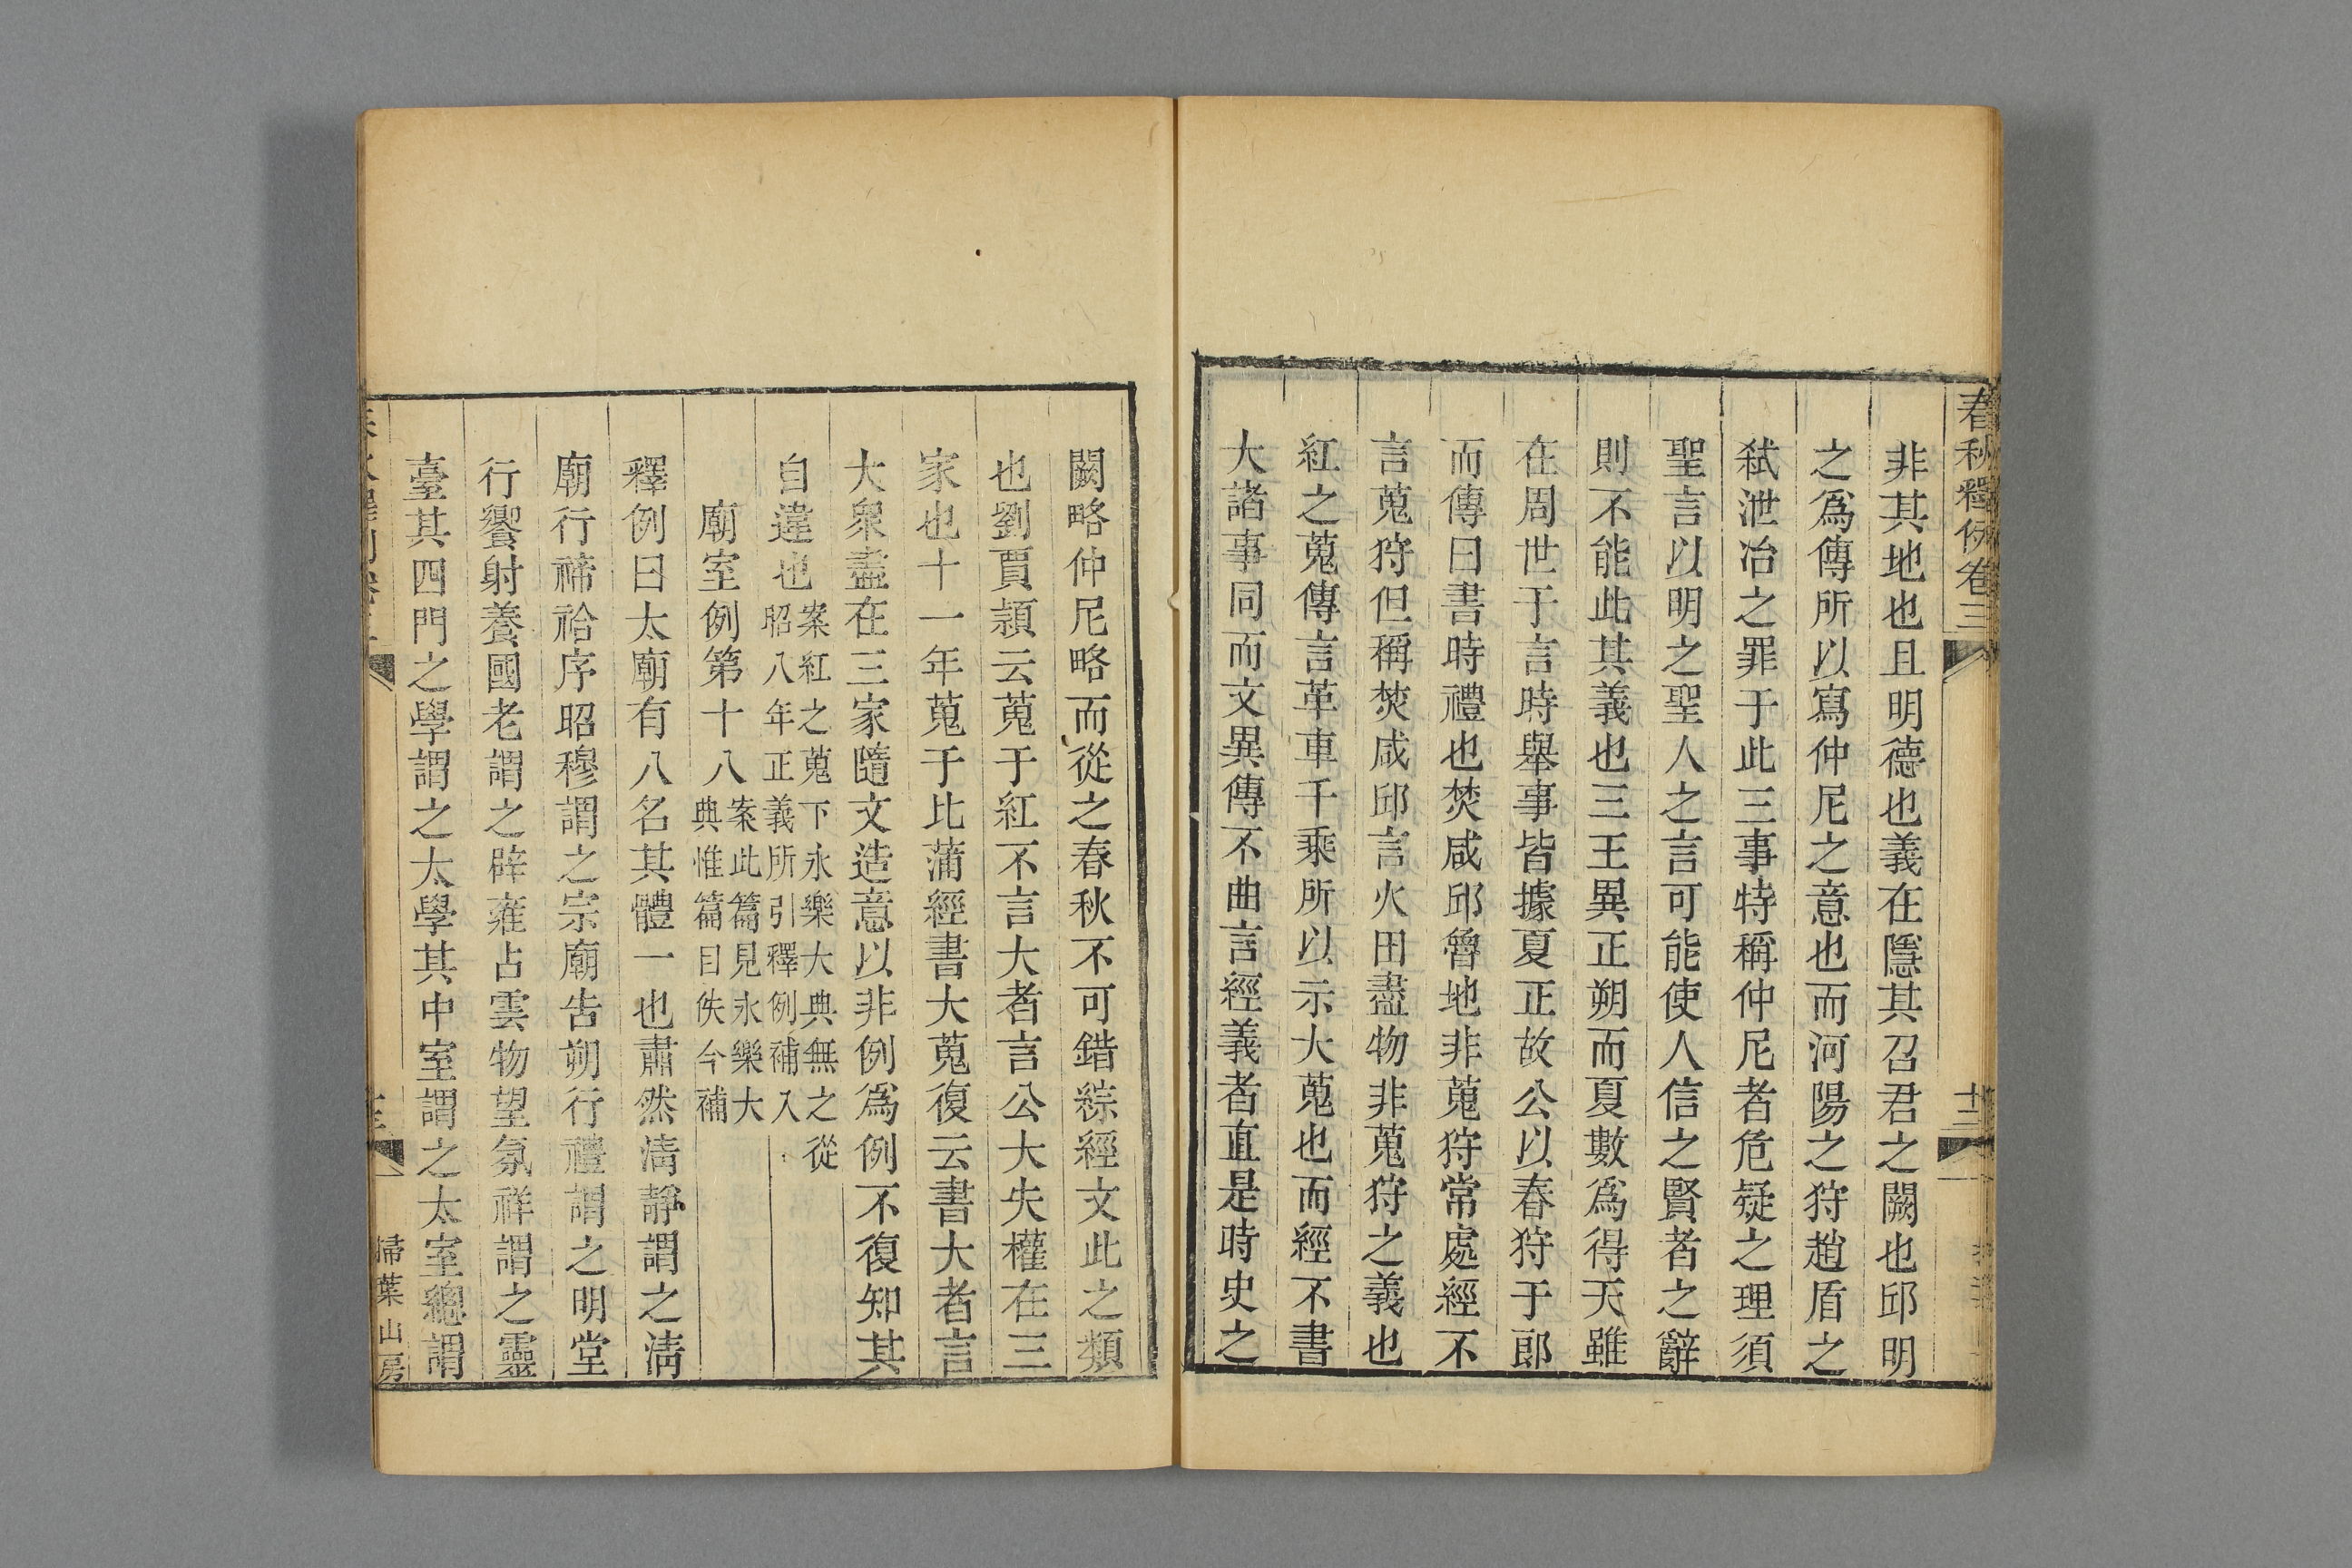 春秋釋例卷三
十二
非其地也且明德也義在隱其召君之闕也邱明
之爲傳所以寫仲尼之意也而河陽之狩趙盾之
弒泄冶之罪于此三事特稱仲尼者危疑之理須
聖言以明之聖人之言可能使人信之賢者之辭
則不能此其義也三王異正朔而夏數爲得天雖
在周世于言時舉事皆據夏正故公以春狩于郎
而傳曰書時禮也焚咸邱魯地非蒐狩常處經不
言蒐狩但稱焚咸邱言火田盡物非蒐狩之義也
紅之蒐傳言革車千乘所以示大蒐也而經不書
大諸事同而文異傳不曲言經義者直是時史之
闕略仲尼略而從之春秋不可錯綜經文此之類
也劉賈潁云蒐于紅不言大者言公大失權在三
家也十一年蒐于比蒲經書大蒐復云書大者言
大衆盡在三家隨文造意以非例爲例不復知其
自違也案紅之蒐下永樂大典無之從
昭八年正義所引釋例補入
廟室例第十八案此篇見永樂大
典惟篇目佚今補
釋例曰太廟有八名其體一也肅然淸靜謂之淸
廟行禘祫序昭穆謂之宗廟告朔行禮謂之明堂
行饗射養國老謂之辟雍占雲物望氛祥謂之靈
臺其四門之學謂之太學其中室謂之太室總謂
掃葉山房